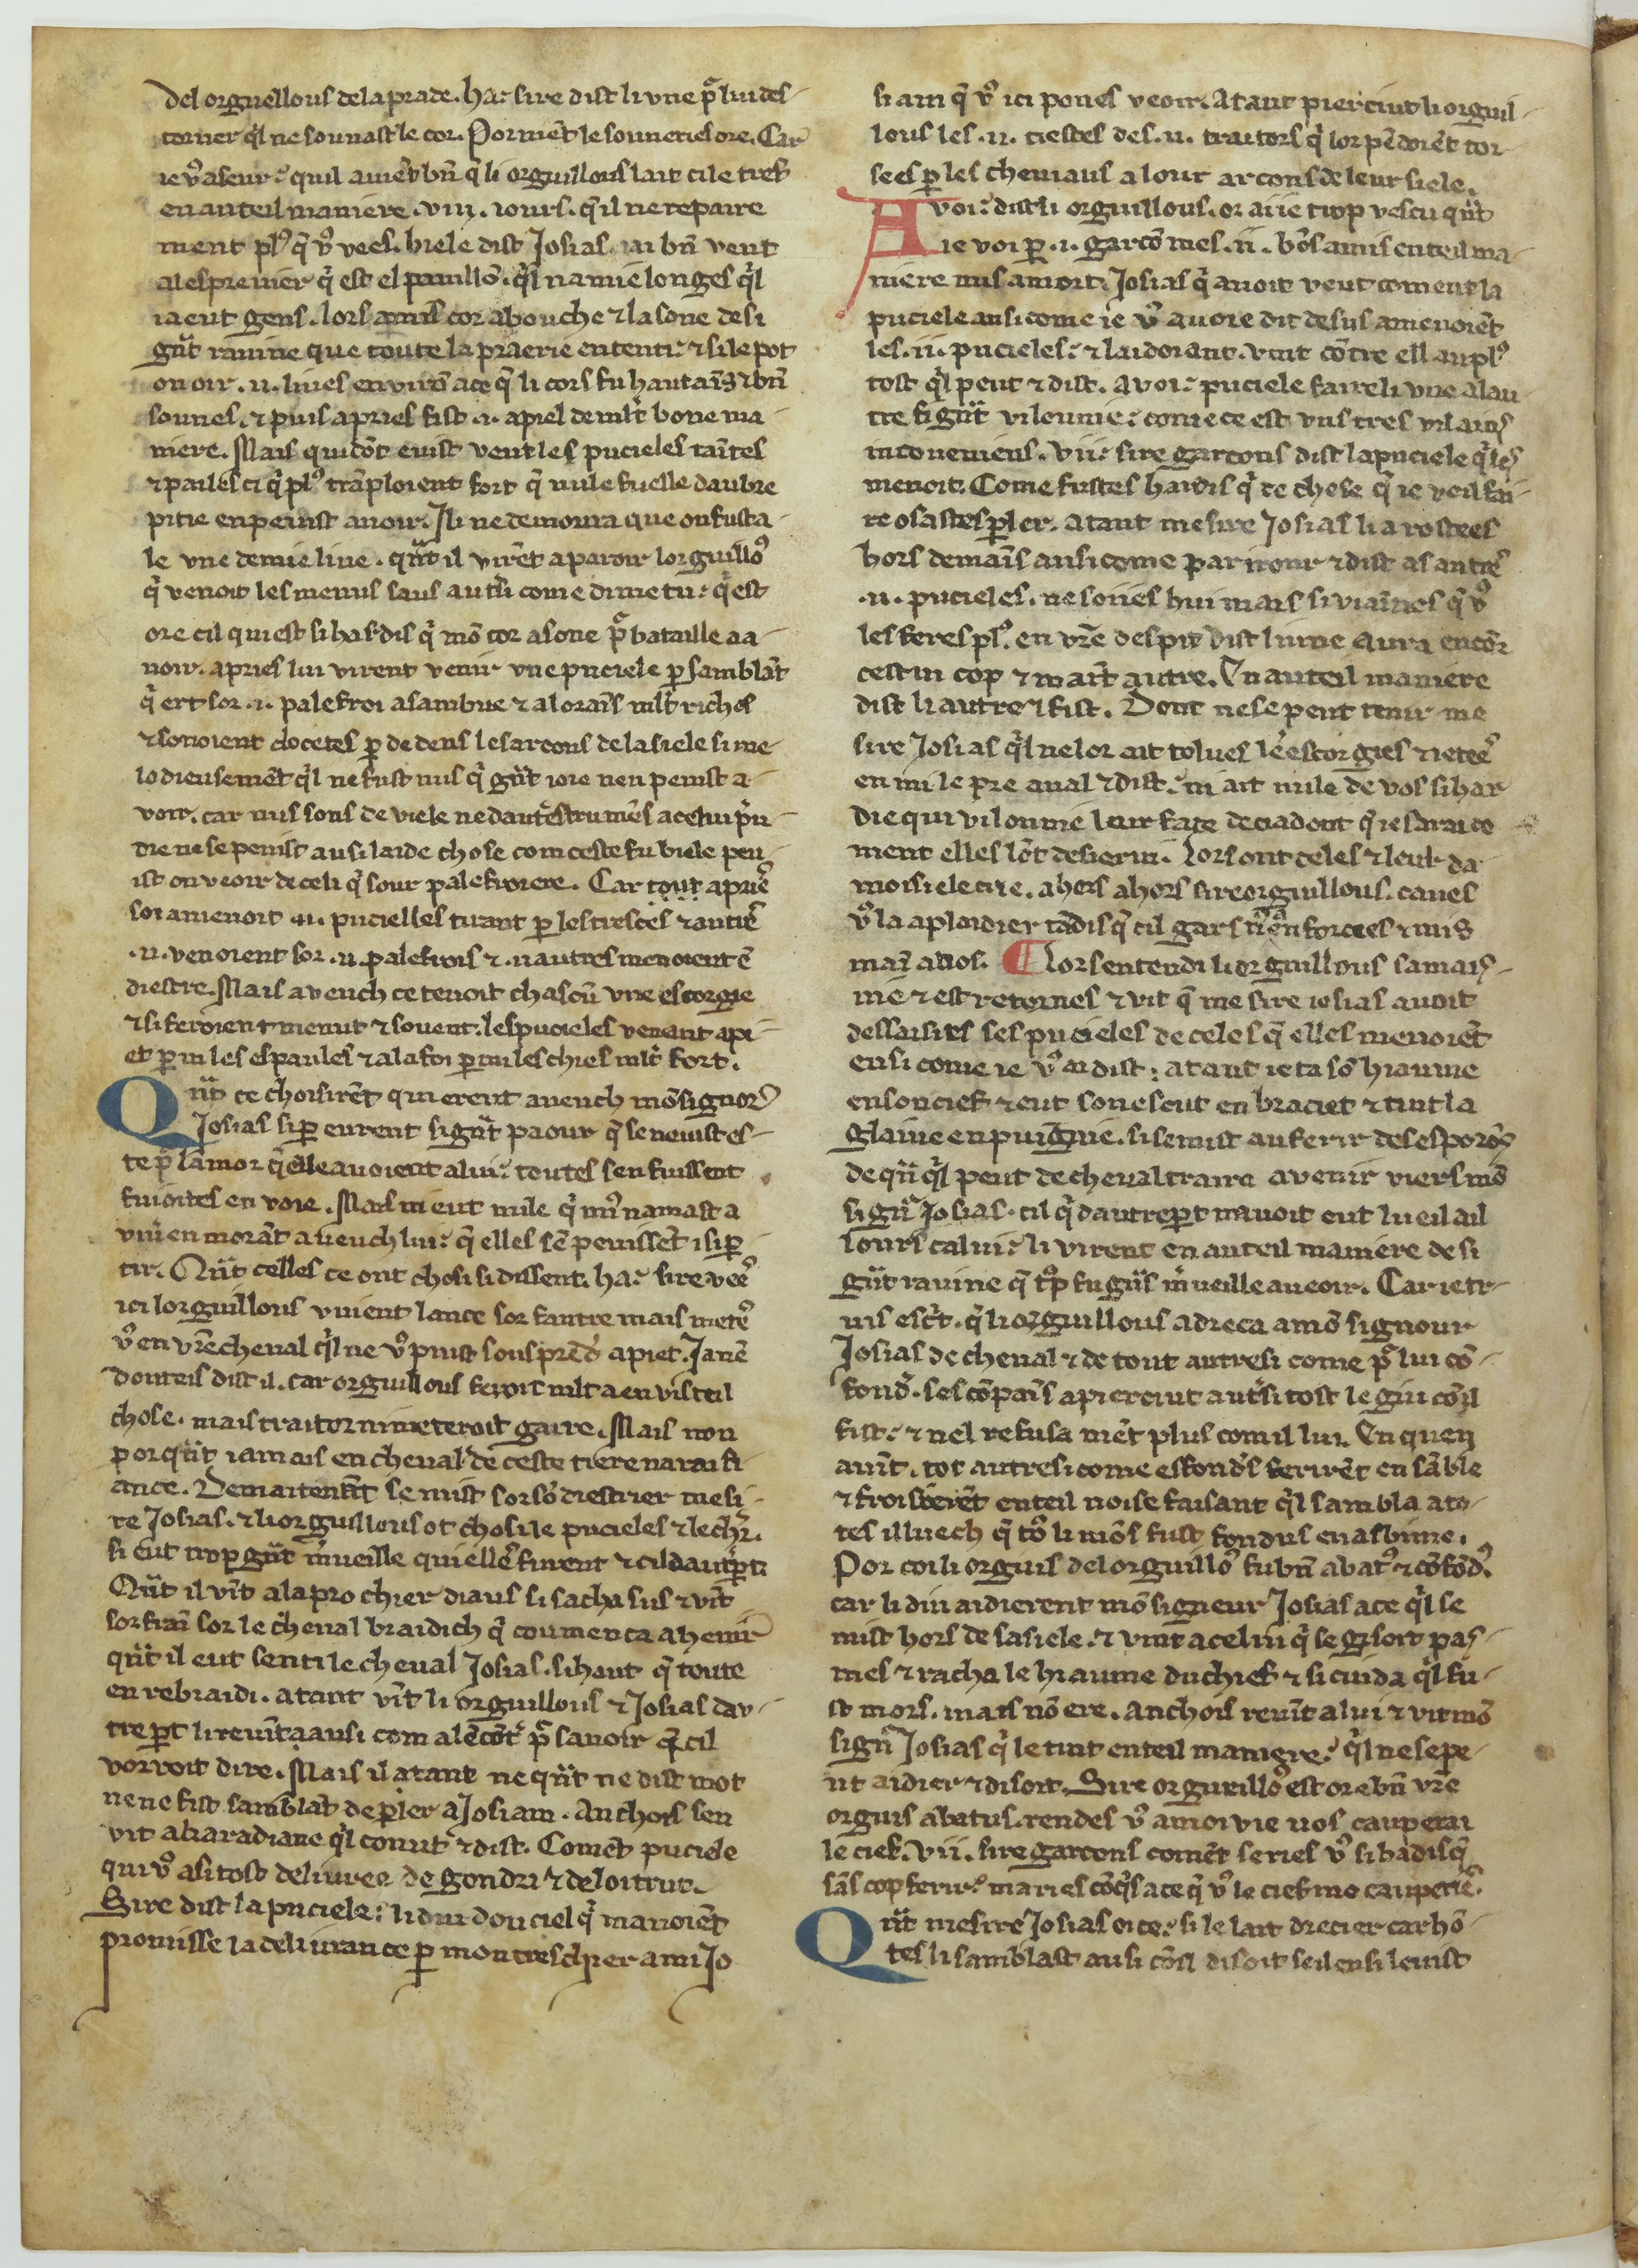 del orguellous de la prade. ha: sire dist li vne pͣ lui des-
torner ql̓ ne sonnast le cor. Por niēt le soneries ore. Car
ie vꝰ aseur: quil auiēt bn̄ q̓ li orguillous lait cile tref
en auteil maniere .viij. iours. q̓ il ne repaire
ment plꝰ q̓ vꝰ vees. biele dist Josias iai bn̄ veut
al espreuier q̓ est el pauillō. ql̓ na mie longes ql̓
ia eut gens. lors a mis cor a bouche ⁊ la sone de si
gn̄t rauine que toute la praerie en tenti: ⁊ si le pot
on oir .ii. liues enuirō a ce q̓ li cors fu hautaīs ⁊ bn̄
sonnes. ⁊ puis apries fist .i. apiel de mlt̓ bone ma-
niere. Mais qui dōt euist veut les pucieles taītes
⁊ pailes ci q̓ plꝰ trāploient fort q̓ nule fuelle daubre
pitie en peuist auoir. Jl ne demoura que on fusta-
le vne demie liue. qn̄t il virēt aparoir lorguillꝰ
q̓ venoit les menus saus autr̓si come dimetu: q̓ est
ore cil qui est si hardis q̓ mō cor a sone pͣ bataille aa-
uoir. apries lui virent venir vne puciele ꝑ samblāt
q̓ ert sor .i. palefroi a sambue ⁊ a loraīs mlt̓ riches
⁊ sonoient clocetes ꝑ dedens les arcons de la siele si me-
lodieusemēt ql̓ ne fust nus q̓ gn̄t ioie nen peuist a-
uoir. car nus sons de viele ne dautr̓ estrumēs a celui pͥn
dre ne se peuist ausi laide chose com ceste fu biele peu-
ist on veoir de celi q̓ sour palefroi ere. Car tout apriē
soi amenoit .ii. pucielles tirant ꝑ les tresces ⁊ autr̄s
.ii. venoient sor .ii. palefrois ⁊ .ii. autres menoient ē
diestre. Mais auenc ce tenoit chascūn vne escorgie
⁊ si feroient menut ⁊ souent. les pucieles venant a pi-
et ꝑ mi les espaules ⁊ a la foi ꝑ mi les chies mlt̓ fort.
Qn̄t ce choisirēt qui erent auench mōsignor
Josias si ꝑ eurent si gn̄t paour q̓ se ne uist es-
te pͣ lamor q̓ elle auoient a lui: toutes sen fuissent
fuioites en voie. Mais ni eut nule q̓ mꝰ namast a
viū en morāt auench lui: q̓ elles sē peuissēt isi ꝑ
tir. Qn̄t celles ce ont chosi si dissent. ha: sire veē
ici lorguillous vient lance sor fautre mais metē
vꝰ en vrē cheual ql̓ ne vꝰ puist sous prēdr̓ a piet. Ja nē
douteis dist il. car orguillous feroit mlt̓ a envis teil
chose. mais traitor ni meteroit gaire. Mais non
por qn̄t iamais en cheual de ceste tiere narai fi
ance. Demaitenāt se mist sor sō diestrier mesi-
re Josias. ⁊ li orguillous ot chosi le pucieles ⁊ le ch̓r.
si eut trop gn̄t mꝰueille qui ellē furent ⁊ cil dautr̓ ꝑt.
Qn̄t il vīt al aprochier diaus si sacha sus ⁊ vīt
sor fraī sor le cheual braidich q̓ coumenca a henir
qn̄t il eut senti le cheual Josias. si haut q̓ toute
en rebraidi. atant vīt li orguillous ⁊ Josias dau-
tre ꝑt li reuīta ausi com al ēcōtr̓ pͣ sauoir q̓ cil
vorroit dire. Mais il atant ne qn̄t ne dist mot
ne ne fist samblāt de ꝑler a Josiam. Anchois sen
vit a haradiane ql̓ conut ⁊ dist. Comēt puciele
qui vꝰ a si tost deliuree de gondri ⁊ deloitrut.
Sire dist la puciele: li diu dou ciel q̓ mauoiēt
promisse la deliurance ꝑ mon treschier ami Jo
siam q̓ vꝰ ici poues veoir. Atant piercut li orguil-
lous les .ii. tiestes des .ii. traitors q̓ lor pēdoiēt tor-
sees ꝑ les cheuiaus a lour arcons de leur siele.
Avoi: dist li orguillous. or ai ie trop vescu qn̄t
ie voi ꝑ .i. garcō mes .ii. bōs amis en teil ma-
niere mis a mort. Josias q̓ auoit veut coment la
puciele ausi come ie vꝰ auoie dit desus amenoiēt
les .ii. pucieles: ⁊ laidoiant. vint cōtre ell au plꝰ
tost ql̓ peut ⁊ dist. Avoi: puciele faire li vne alau-
tre si gn̄t vilounie: come ce est vns tres vilains
inconueniens. Vii: sire garcons dist la puciele q̓ les
menoit. Come fustes hardis q̓ de chose q̓ ie veil fai-
re osastes ꝑler. atant mesire Josias li a rostees
hors de maīs ausi come par irour ⁊ dist as autrē
.ii. pucieles. ne soiies hui mais si viaīnes q̓ vꝰ
les feres plꝰ. en vrē despit dist li une aura encōr
cestui cop ⁊ maīt autre. En auteil maniere
dist li autre ⁊ fist. Dont ne se peut tenir me
sire Josias ql̓ ne lor ait tolues lē escorgies ⁊ ietēē
en mi le pre aual ⁊ dist: ni ait nule de vos si har
die qui vilounie leur face deciadont q̓ ie sarai co
ment elles lōt desierui. Lors ont celes ⁊ leur da-
moisiele crie. ahors ahors sire orguillous. caues
vꝰ la a plaidier tādis q̓ cil gars nꝰ a enforcies ⁊ mis
maī a nos. Lors entendi li orguillous sa mais-
nie ⁊ est retornes ⁊ vit q̓ me sire iosias auoit
dessaisies ses pucieles de celes q̓ elles menoiēt
ensi come ie vꝰ ai dist: atant ieta sō hiaume
en son cief ⁊ eut son escut enbraciet ⁊ tint la
glaiue en puigne. si se mist au ferir des esporōs
de qn̄ql̓ peut de cheual traire a venir viers mō
sign̄ Josias. cil q̓ dautre ꝑt n̄auoit eut lueil ail
lours ca lui: li virent en auteil maniere de si
gn̄t rauine q̓ tꝓ fu gn̄s mꝰueille a ueoir. Car ie tr-
uis escͥt. q̓ li orguillous adreca a mō signour
Josias de cheual ⁊ de tout autresi come pͣ lui cō-
fondr̓. ses cōpaīs apiercut autr̓si tost le giu cō il
fist: ⁊ nel refusa niēt plus com il lui. En quen
auīt. tot autresi come esfondr̓s ferirēt ensāble
⁊ froisierēt en teil noise faisant ql̓ sambla a to-
tes illuech q̓ tōs li mōs fust fondus en abime.
Por coi li orguis del orguillꝰ fu bn̄ abatꝰ ⁊ cōfōdꝰ.
car li diu aidierent mō signeur Josias a ce ql̓ se
mist hors de sa siele. ⁊ vint a celui q̓ se gisoit pas-
mes ⁊ racha le hiaume du chief ⁊ si cuida ql̓ fu-
st mors. mais nō ere. Anchois reuīt a lui ⁊ vit mō
sign̄ Josias q̓ le tint en teil maniere: ql̓ ne se pe-
ut aidier ⁊ disoit. Sire orguillꝰ est ore bn̄ vrē
orguis abatus. rendes vꝰ a moi v ie vos cauperai
le cief. Vii. sire garcons comēt series vꝰ si hādis q̓
sās cop ferir: maries cōq̓s a ce q̓ vꝰ le cief me cauperiē.
Qn̄t mesire Josias oi ce: si le lait drecier car hō-
tes li samblast ausi cō il disoit se il ensi leuist